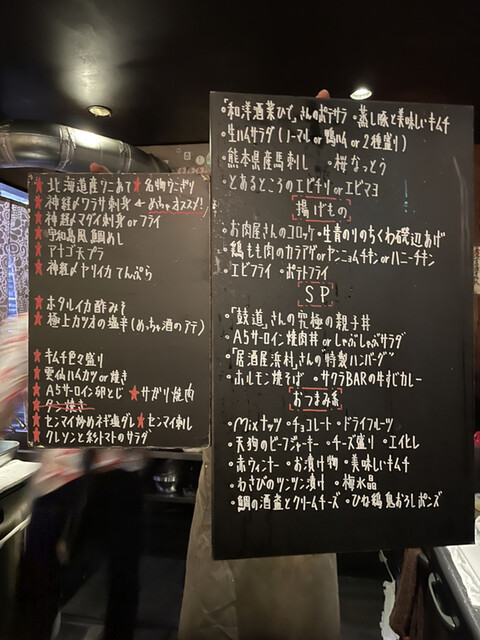 ★北海道産うにあて ★名物うにぎり
★神経〆ワラサ刺身 ← めっちゃオススメ!
★神経〆マダイ刺身 or フライ
★宇和島風鯛めし
★アナゴ天プラ
★神経〆ヤリイカ てんぷら
★ホタルイカ酢みそ
★極上カツオの塩辛(めっちゃ酒のアテ)
★キムチ色々盛り
★雲仙ハムカツ or 焼き
★A5サーロイン卵とじ ★サガリ焼肉
★タン焼き
★センマイ炒めネギ塩ダレ ★センマイ刺し
★クレソンと彩トマトのサラダ
・「和洋酒菜ひで」さんのポテサラ ・蒸し豚と美味しいキムチ
・生ハムサラダ(ノーマル or 鴨ハム or 2種盛り)
・熊本県産馬刺し ・桜なっとう
・とあるところのエビチリ or エビマヨ
揚げもの
・お肉屋さんのコロッケ ・生青のりのちくわ磯辺あげ
・鶏もも肉のカラアゲ or ヤンニョムチキン or ハニーチキン
・エビフライ ・ポテトフライ
SP
・「鼓道」さんの究極の親子丼
・A5サーロイン焼肉丼 or しゃぶしゃぶサラダ
・「居酒屋浜村」さんの"特製ハンバーグ"
・ホルモン焼そば ・サクラBARの牛すじカレー
おつまみ系
・Mixナッツ ・チョコレート ・ドライフルーツ
・天狗のビーフジャーキー ・チーズ盛り ・エイヒレ
・赤ウィンナー ・お漬け物 ・美味しいキムチ
・わさびのツンツン漬け ・梅水晶
・鯛の酒盗とクリームチーズ ・ひね鶏 鬼おろしポンズ